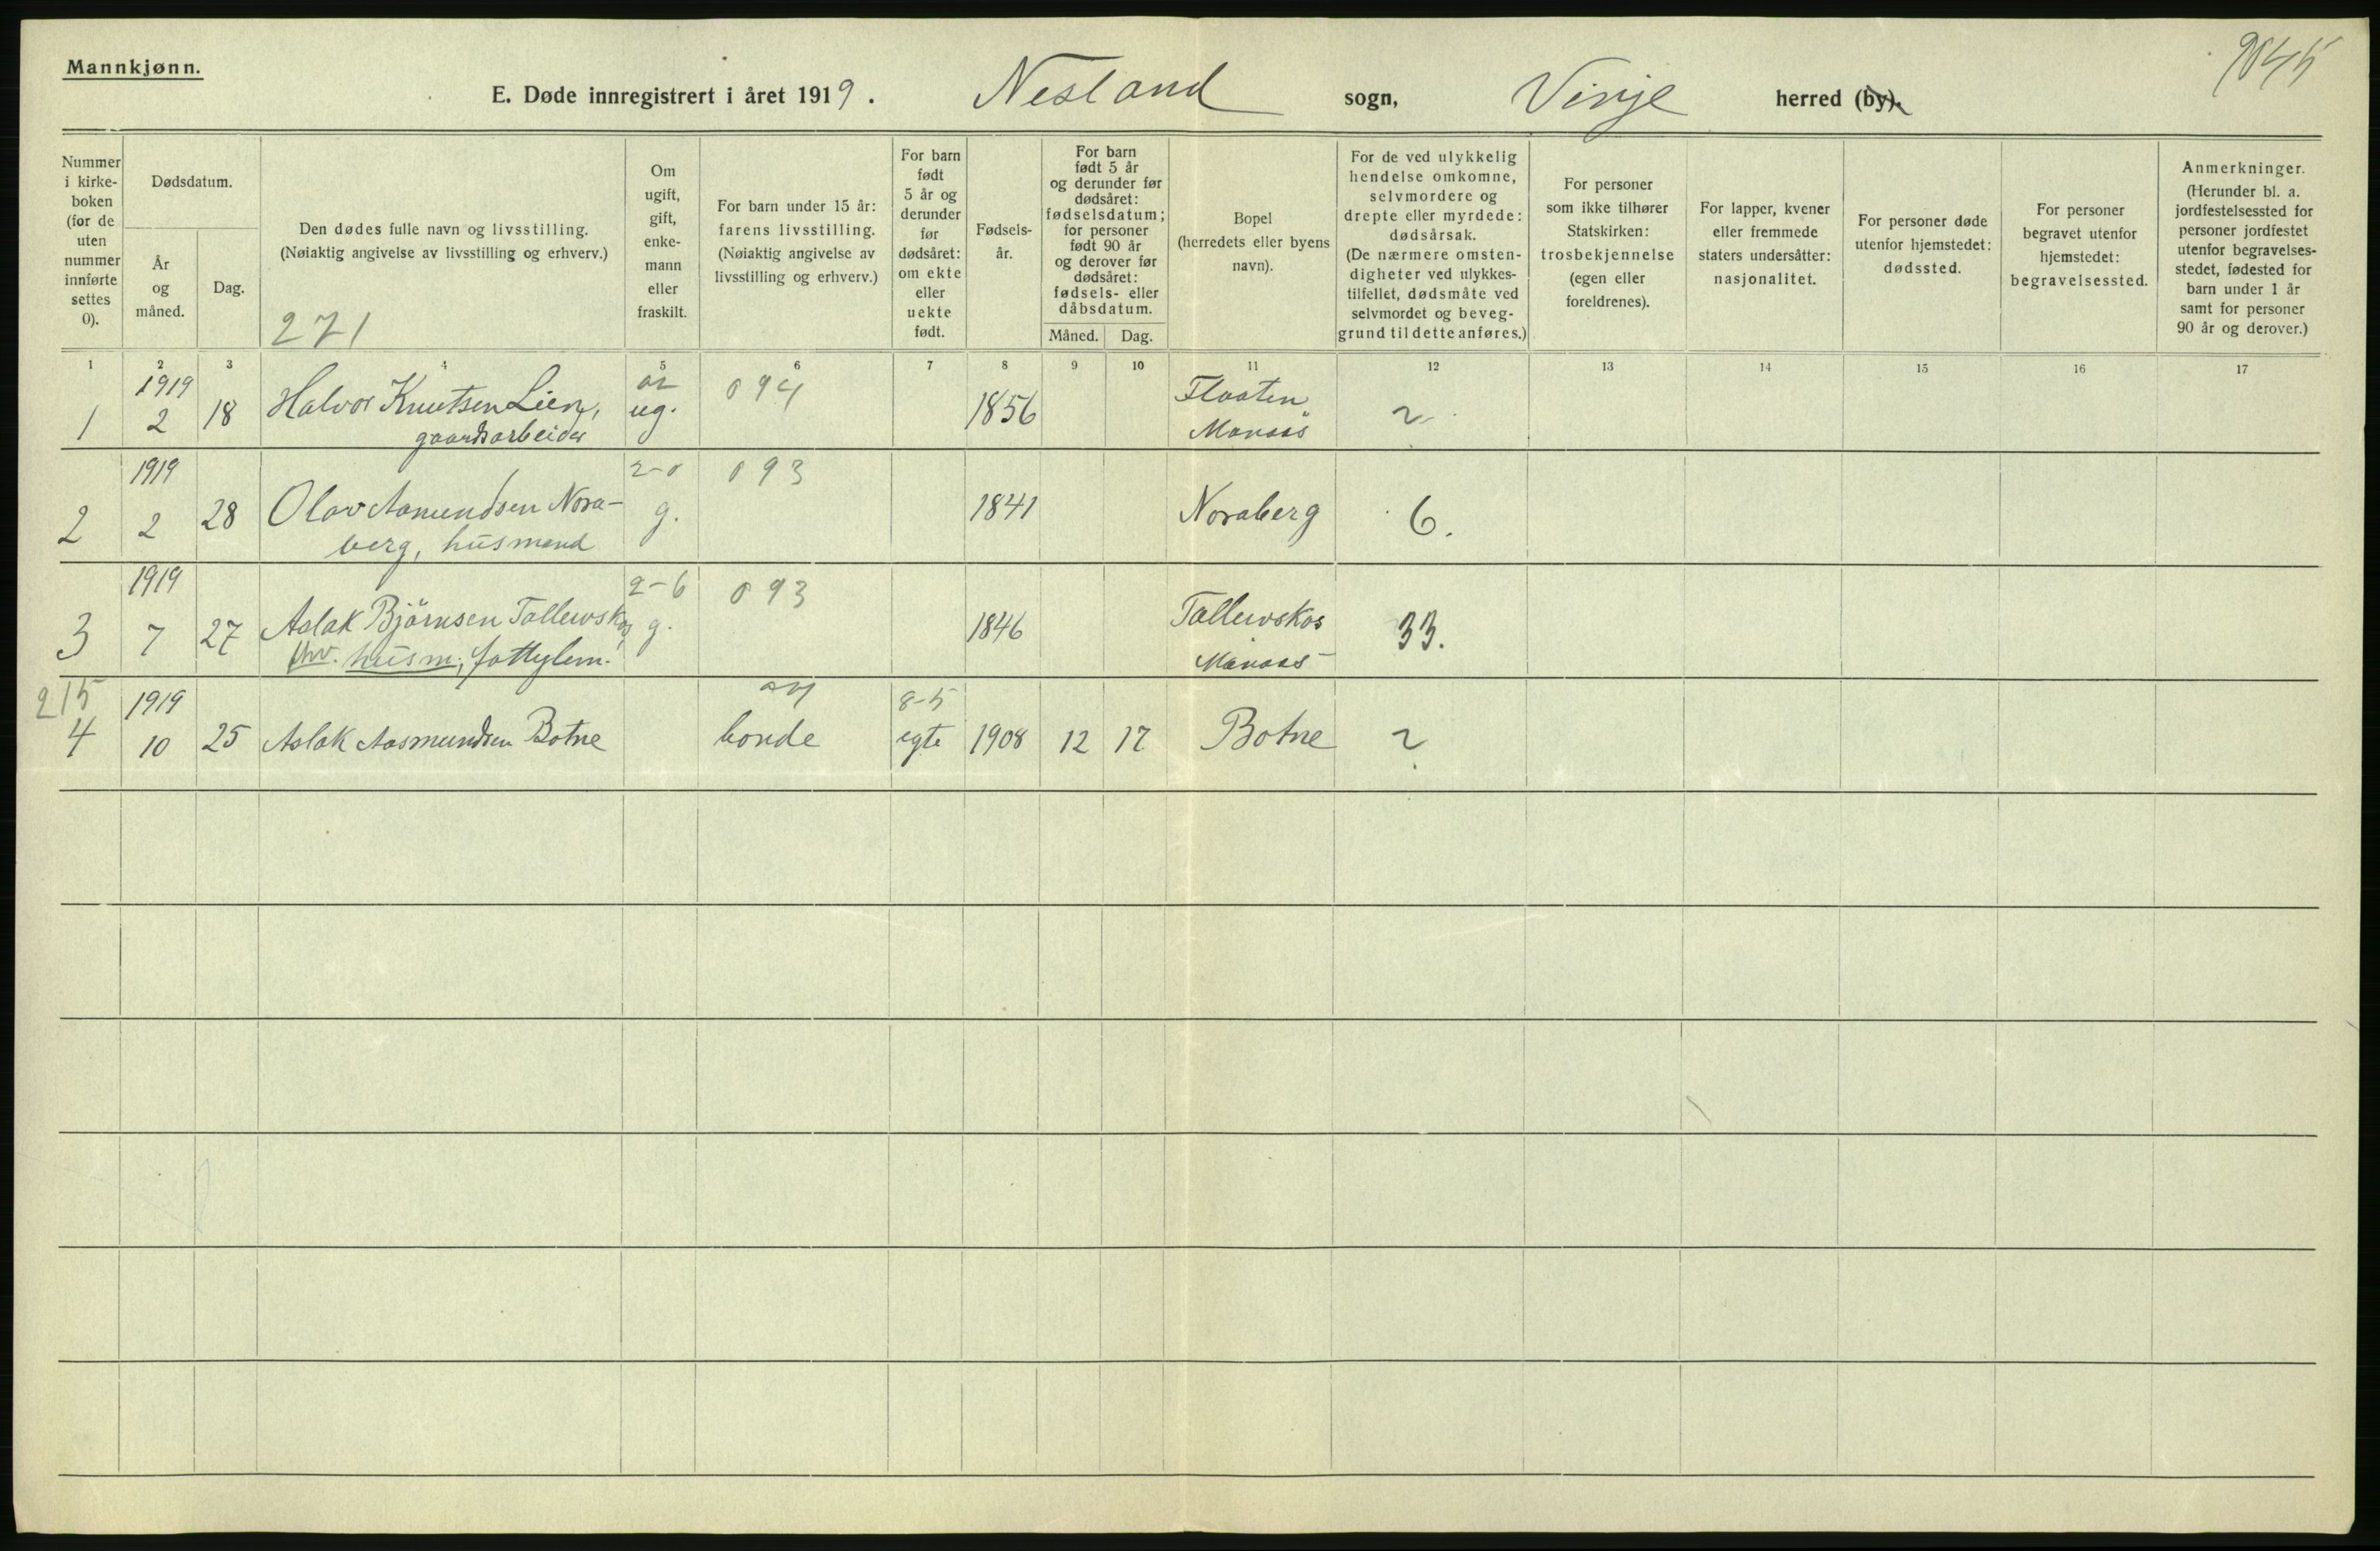 Mannkjønn.
9845
E. Døde innregistrert i året 1919. Nesland sogn, Vinje herred (by).
Nummer i kirke-boken (for de uten nummer innførte settes 0).
Dødsdatum.
År og måned.
Dag.
Den dødes fulle navn og livsstilling.
(Nøiaktig angivelse av livsstilling og erhverv.)
271
Om ugift, gift, enke-mann eller fraskilt.
For barn under 15 år: farens livsstilling. (Nøiaktig angivelse av livsstilling og erhverv.)
For barn født 5 år og derunder før dødsåret: om ekte eller uekte født.
Fødsels-år.
For barn født 5 år og derunder før dødsåret: fødselsdatum; for personer født 90 år og derover før dødsåret: fødsels- eller dåbsdatum.
Måned. Dag.
Bopel (herredets eller byens navn).
For de ved ulykkelig hendelse omkomne, selvmordere og drepte eller myrdede: dødsårsak. (De nærmere omsten-digheter ved ulykkes-tilfellet, dødsmåte ved selvmordet og beveg-grund til dette anføres.)
For personer som ikke tilhører Statskirken: trosbekjennelse (egen eller foreldrenes).
For lapper, kvener eller fremmede staters undersåtter: nasjonalitet.
For personer døde utenfor hjemstedet: dødssted.
For personer begravet utenfor hjemstedet: begravelsessted.
Anmerkninger. (Herunder bl. a. jordfestelsessted for personer jordfestet utenfor begravelses-stedet, fødested for barn under 1 år samt for personer 90 år og derover.)
1 2 3 4 5 6 7 8 9 10 11 12 13 14 15 16 17
1919 094 Flaaten
1 2 18 Halvor Knutsen Lien, ug. 1856
gaardsarbeider Manaas
1919 2-0 093
2 2 28 Olav Aamundsen Nora- g. 1841 Noraberg 6.
berg, husmand
1919 2-6 093
3 7 27 Aslak Björnsen Tallevskos g. 1846 Tallevskos 33.
fhv. husm., fattiglem. Manaas
215 1919 8-5
4 10 25 Aslak Aasmundsen Botne bonde egte 1908 12 17 Botne